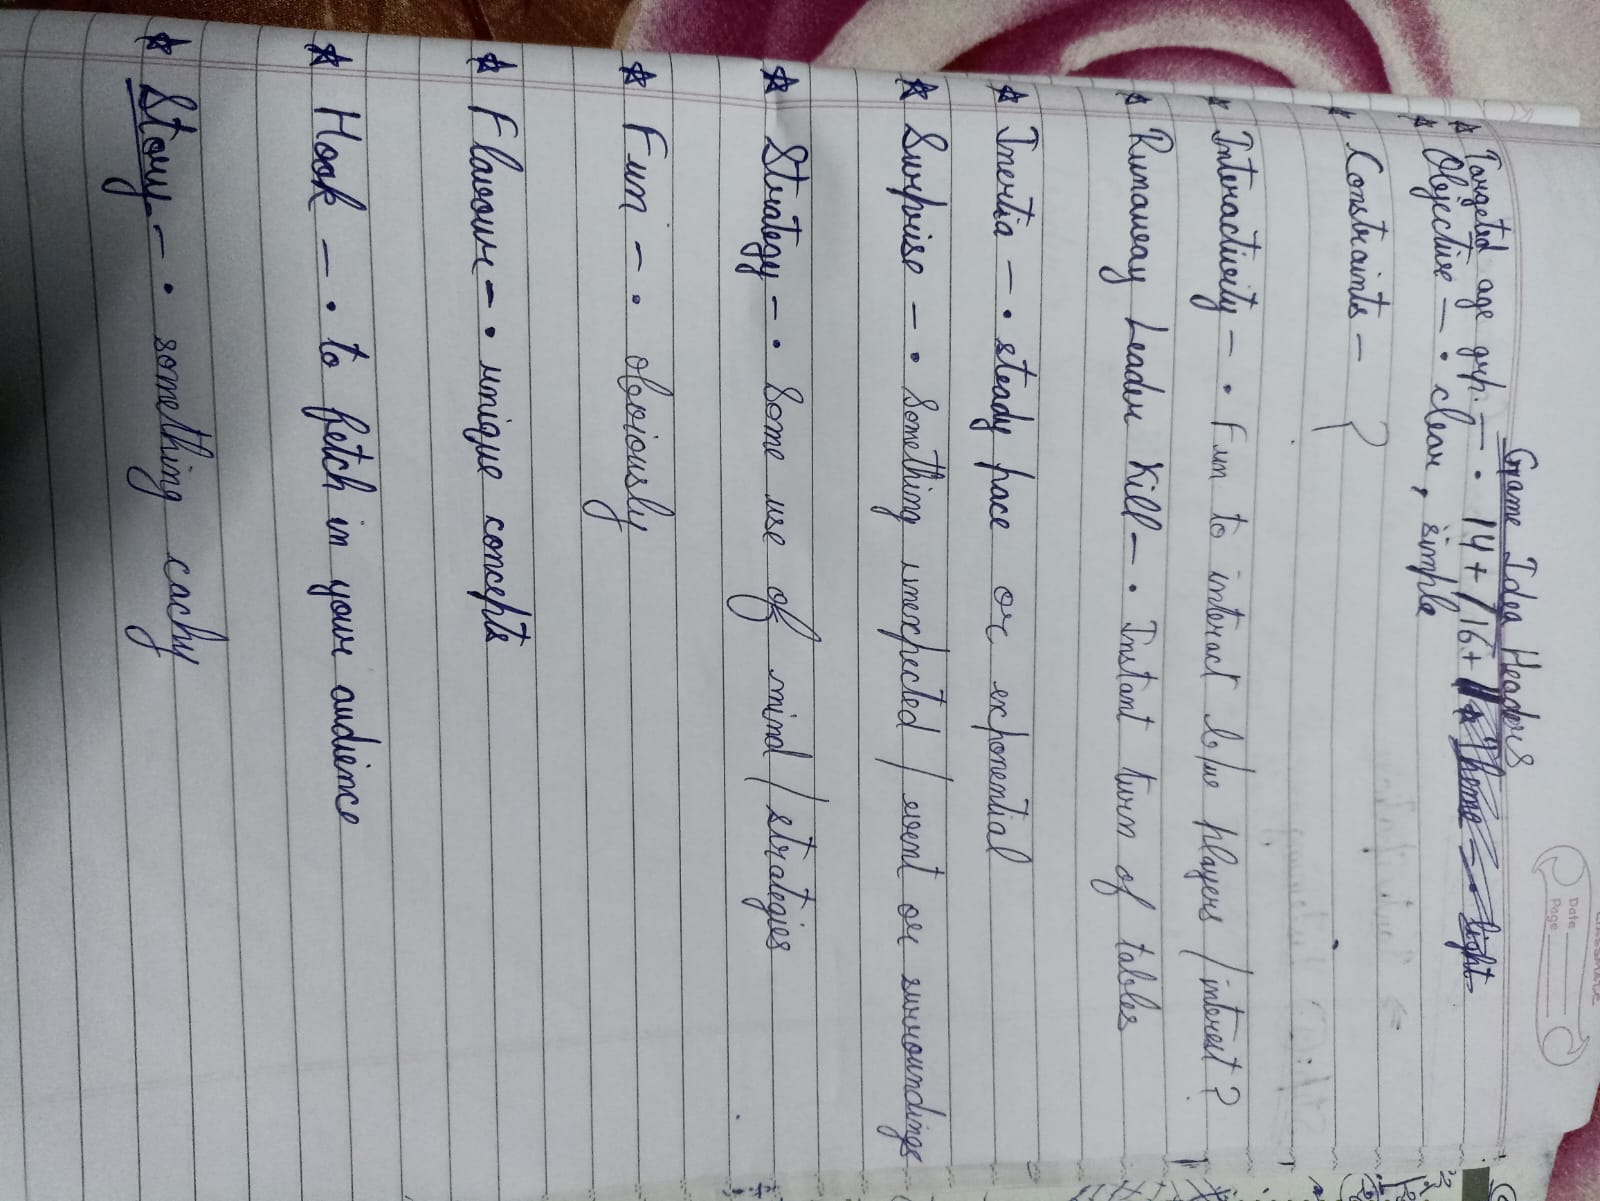 Date
Page
Game Idea Headers
☆ Targeted age grp. — • 14+ / 16+
☆ Objective — • clear, simple
☆ Constraints — ?
☆ Interactivity — • Fun to interact b/w players / interest?
☆ Runaway Leader Kill — • Instant turn of tables
☆ Inertia — • steady pace or exponential
☆ Surprise — • Something unexpected / event or surroundings
☆ Strategy — • Some use of mind / strategies
☆ Fun — • obviously
☆ Flavour — • unique concepts
☆ Hook — • to fetch in your audience
☆ Story — • something cachy